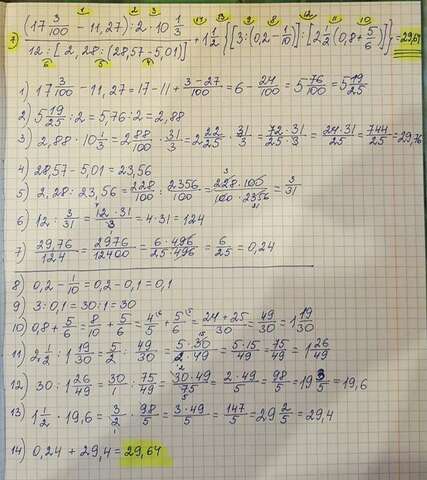 1 2 3 13 12 9 8 11 10
(17 3/100 − 11,27) : 2 · 10 1/3
12 : [2,28 : (28,57 − 5,01)] + 1 1/2 · {[3 : (0,2 − 1/10)] : [2 1/2 : (0,8 + 5/6)]} = 29,64
6 5 4
1) 17 3/100 − 11,27 = 17 − 11 + 3 − 27/100 = 6 − 24/100 = 5 76/100 = 5 19/25
2) 5 19/25 : 2 = 5,76 : 2 = 2,88
3) 2,88 · 10 1/3 = 2 88/100 · 31/3 = 2 22/25 · 31/3 = 72 · 31/25 · 3 = 24 · 31/25 = 744/25 = 29,76
4) 28,57 − 5,01 = 23,56
5) 2,28 : 23,56 = 228/100 : 2356/100 = 228 · 100/100 · 2356 = 3/31
6) 12 : 3/31 = 12 · 31/3 = 4 · 31 = 124
7) 29,76/124 = 2976/12400 = 6 · 496/25 · 496 = 6/25 = 0,24
8) 0,2 − 1/10 = 0,2 − 0,1 = 0,1
9) 3 : 0,1 = 30 : 1 = 30
10) 0,8 + 5/6 = 8/10 + 5/6 = 4/5 + 5/6 = 24 + 25/30 = 49/30 = 1 19/30
11) 2 1/2 : 1 19/30 = 5/2 : 49/30 = 5 · 30/2 · 49 = 5 · 15/49 = 75/49 = 1 26/49
12) 30 : 1 26/49 = 30/1 : 75/49 = 30 · 49/75 = 2 · 49/5 = 98/5 = 19 3/5 = 19,6
13) 1 1/2 · 19,6 = 3/2 · 98/5 = 3 · 49/5 = 147/5 = 29 2/5 = 29,4
14) 0,24 + 29,4 = 29,64